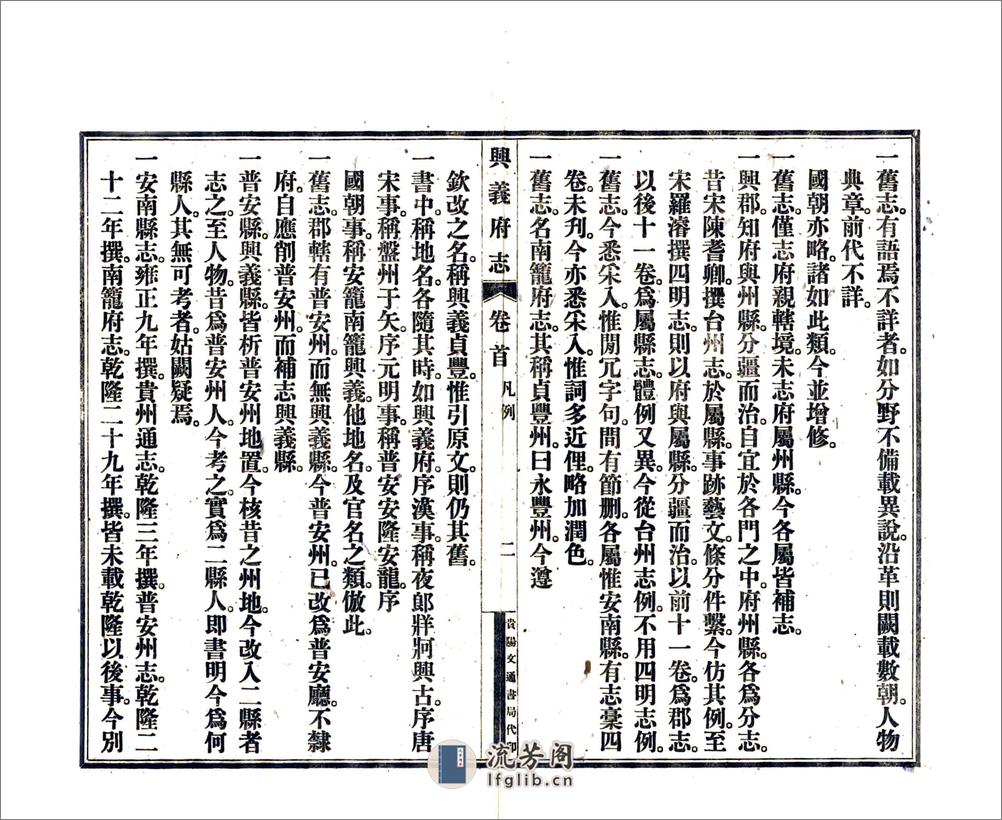 一舊志有語焉不詳者如分野不備載異說沿革則闕載數朝人物
典章前代不詳
國朝亦略諸如此類今並增修
一舊志僅志府親轄境未志府屬州縣今各屬皆補志
一興郡知府與州縣分疆而治自宜於各門之中府州縣各爲分志
昔宋陳耆卿撰台州志於屬縣事跡藝文條分件繫今仿其例至
宋羅濬撰四明志則以府與屬縣分疆而治以前十一卷爲郡志
以後十一卷爲屬縣志體例又異今從台州志例不用四明志例
一舊志今悉采入惟閒冗字句間有節删各屬惟安南縣有志稾四
卷未刋今亦悉采入惟詞多近俚略加潤色
一舊志名南籠府志其稱貞豐州曰永豐州今遵
興義府志
卷首
凡例
二
貴陽文通書局代印
欽改之名稱興義貞豐惟引原文則仍其舊
一書中稱地名各隨其時如興義府序漢事稱夜郞牂牁興古序唐
宋事稱盤州于矢序元明事稱普安安隆安龍序
國朝事稱安籠南籠興義他地名及官名之類倣此
一舊志郡轄有普安州而無興義縣今普安州已改爲普安廳不隸
府自應削普安州而補志興義縣
一普安縣興義縣皆析普安州地置今核昔之州地今改入二縣者
志之至人物昔爲普安州人今考之實爲二縣人卽書明今爲何
縣人其無可考者姑闕疑焉
一安南縣志雍正九年撰貴州通志乾隆三年撰普安州志乾隆二
十二年撰南籠府志乾隆二十九年撰皆未載乾隆以後事今別
流芳阁
lfglib.cn